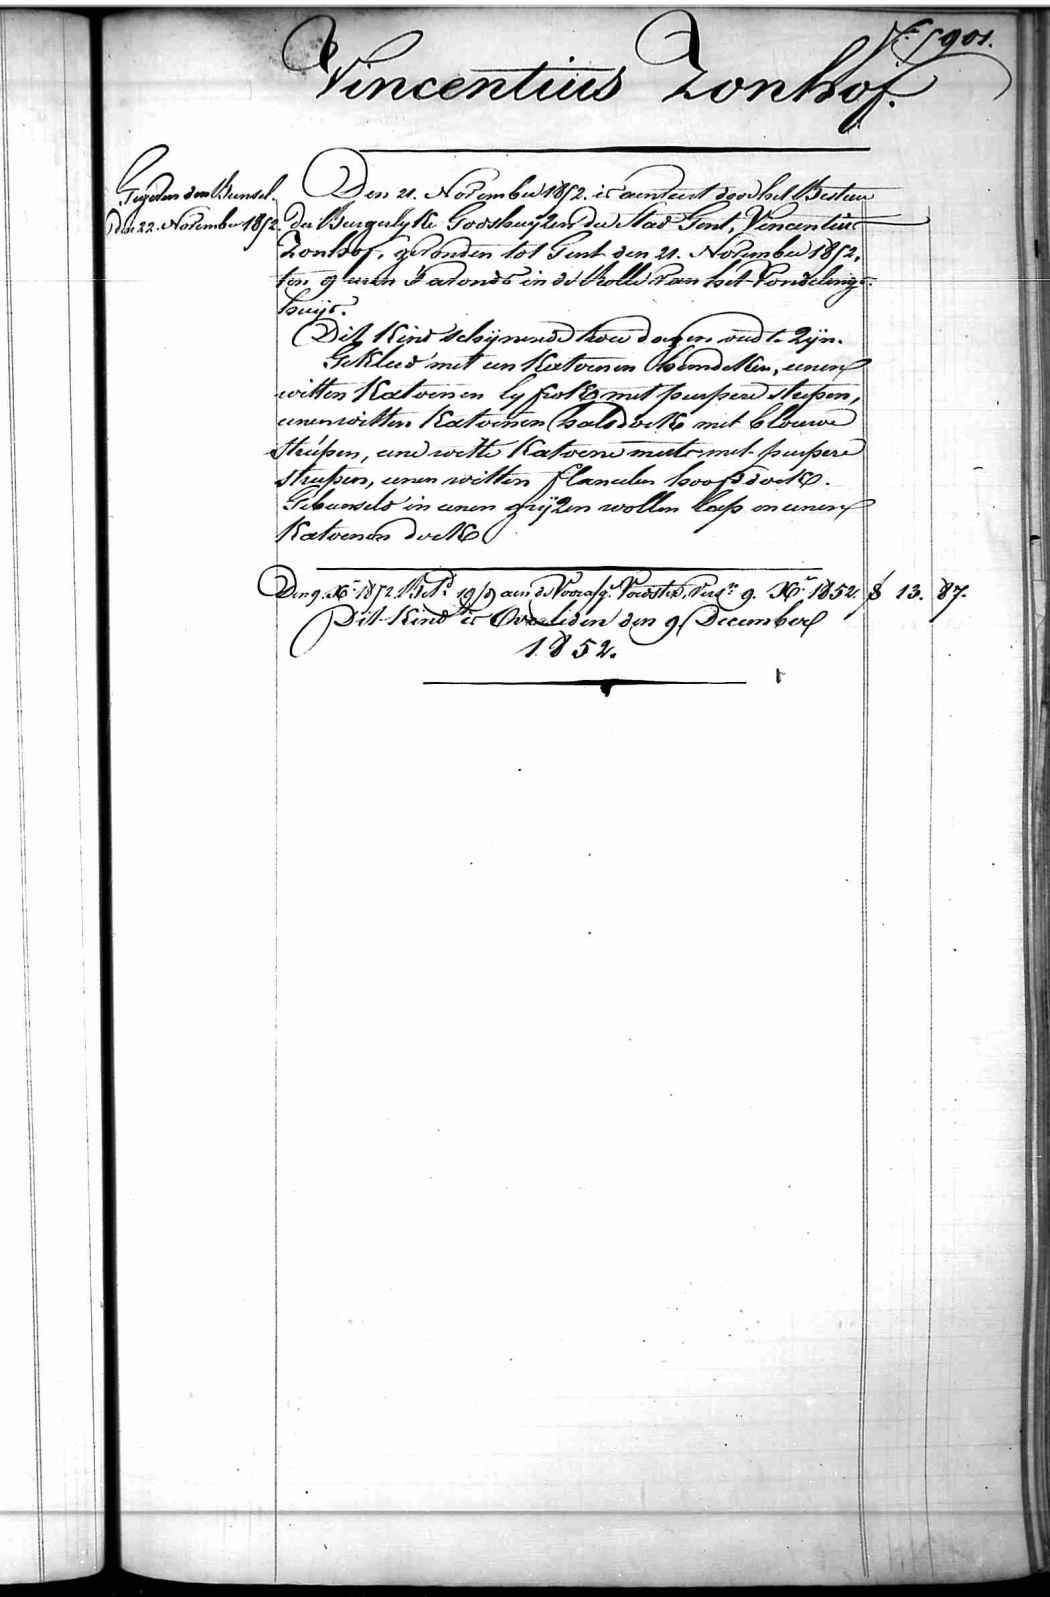 N.º 5901.
Vincentius Zonhof.
Den 21. November 1852. is aenveert door het Bestier
der Burgerlyke Godshuyzen der Stad Gent, Vincentius
Zonhof, gevonden tot Gent den 21. November 1852,
ten 9 uren 's avonds in de Rolle van het Vondelings-
huys.
Den 22. November 1852.
Dit Kind schynende twee dagen oud te zyn.
Gekleed met een Katoenen hemdeken, eenen
witten Katoenen ly frok met purpere strepen,
eenen witten Katoenen halsdoek met blouwe
strepen, eene witte Katoene muts met purpere
strepen, eenen witten flanelen hoofdoek.
Gebunseld in eenen gryzen wollen lap en eenen
Katoenen doek
Den 9. Xbr 1852. aen de Voorz. Voedster, 9. Xbr 1852. 13. 87.
Dit Kind is Overleden den 9 December
1852.